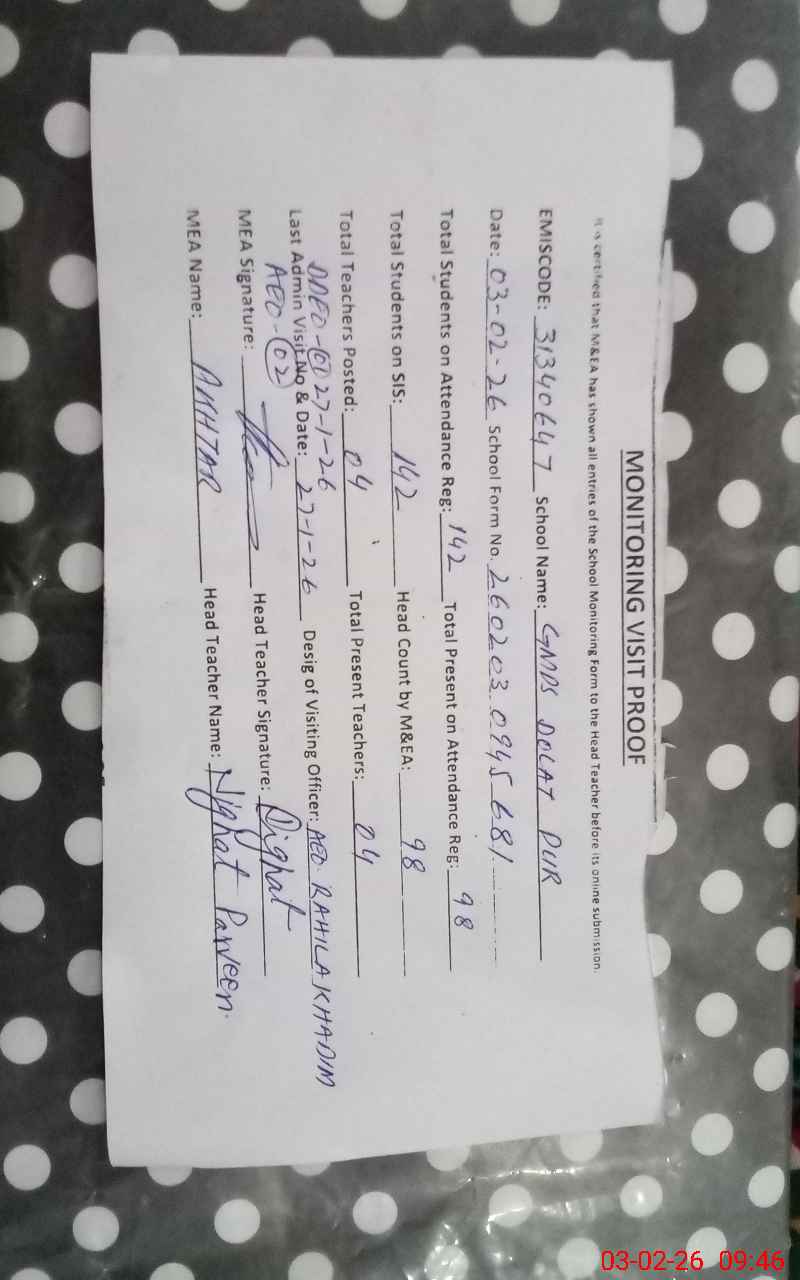 MONITORING VISIT PROOF
It is certified that M&EA has shown all entries of the School Monitoring Form to the Head Teacher before its online submission.
EMISCODE: 31340647 School Name: GMPS DOLAT PUR
Date: 03-02-26 School Form No. 260203 0945681
Total Students on Attendance Reg: 142 Total Present on Attendance Reg: 98
Total Students on SIS: 142 Head Count by M&EA: 98
Total Teachers Posted: 04 Total Present Teachers: 04
DDEO-01 27-1-26
Last Admin Visit No & Date: 27-1-26 Desig of Visiting Officer: AEO RAHILA KHADIM
AEO-02
MEA Signature: Head Teacher Signature: Nighat
MEA Name: AKHTAR Head Teacher Name: Nighat Parveen.
03-02-26 09:46